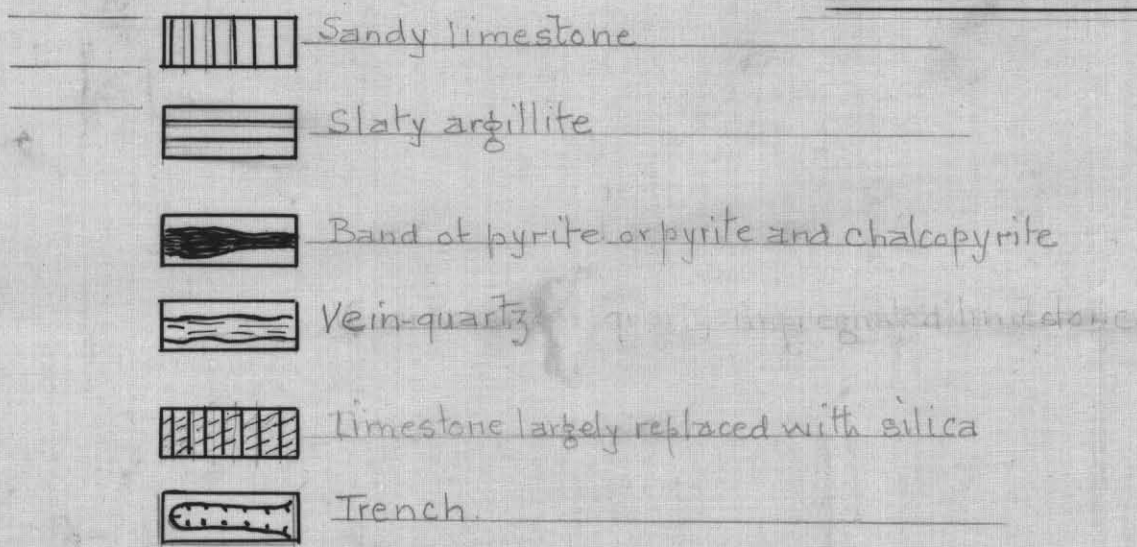 Sandy limestone
Slaty argillite
Band of pyrite or pyrite and chalcopyrite
Vein-quartz impregnated limestone
Limestone largely replaced with silica
Trench.